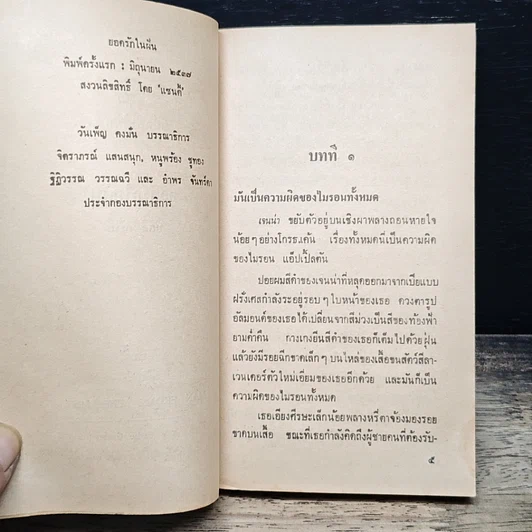 ยอดรักในฝัน
พิมพ์ครั้งแรก : มิถุนายน ๒๕๓๗
สงวนลิขสิทธิ์ โดย 'แซนดี้'
วันเพ็ญ คงมั่น บรรณาธิการ
จิตราภรณ์ แสนสนุก, หนูพร้อง ชูทอง
ฐิฏิวรรณ วรรณฉวี และ อำพร จันทร์คา
ประจำกองบรรณาธิการ
บทที่ ๑
มันเป็นความผิดของไมรอนทั้งหมด
เจนน่า ขยับตัวอยู่บนเชิงผาพลางถอนหายใจ
น้อยๆอย่างโกรธแค้น เรื่องทั้งหมดนี่เป็นความผิด
ของไมรอน แอ๊ปเปิ้ลตัน
ปอยผมสีดำของเจนน่าที่หลุดออกมาจากเปียแบบ
ฝรั่งเศสกำลังระอยู่รอบๆใบหน้าของเธอ ดวงตารูป
อัลมอนด์ของเธอได้เปลี่ยนจากสีม่วงเป็นสีของท้องฟ้า
ยามค่ำคืน กางเกงยีนสีดำของเธอก็เต็มไปด้วยฝุ่น
แล้วยังมีรอยฉีกขาดเล็กๆบนไหล่ของเสื้อขนสัตว์สีลา-
เวนเดอร์ตัวใหม่เอี่ยมของเธออีกด้วย และมันก็เป็น
ความผิดของไมรอนทั้งหมด
เธอเอียงศีรษะเล็กน้อยพลางหรี่ตาจ้องมองรอย
ขาดบนเสื้อ ขณะที่เธอกำลังคิดถึงผู้ชายคนที่ต้องรับ-
๕